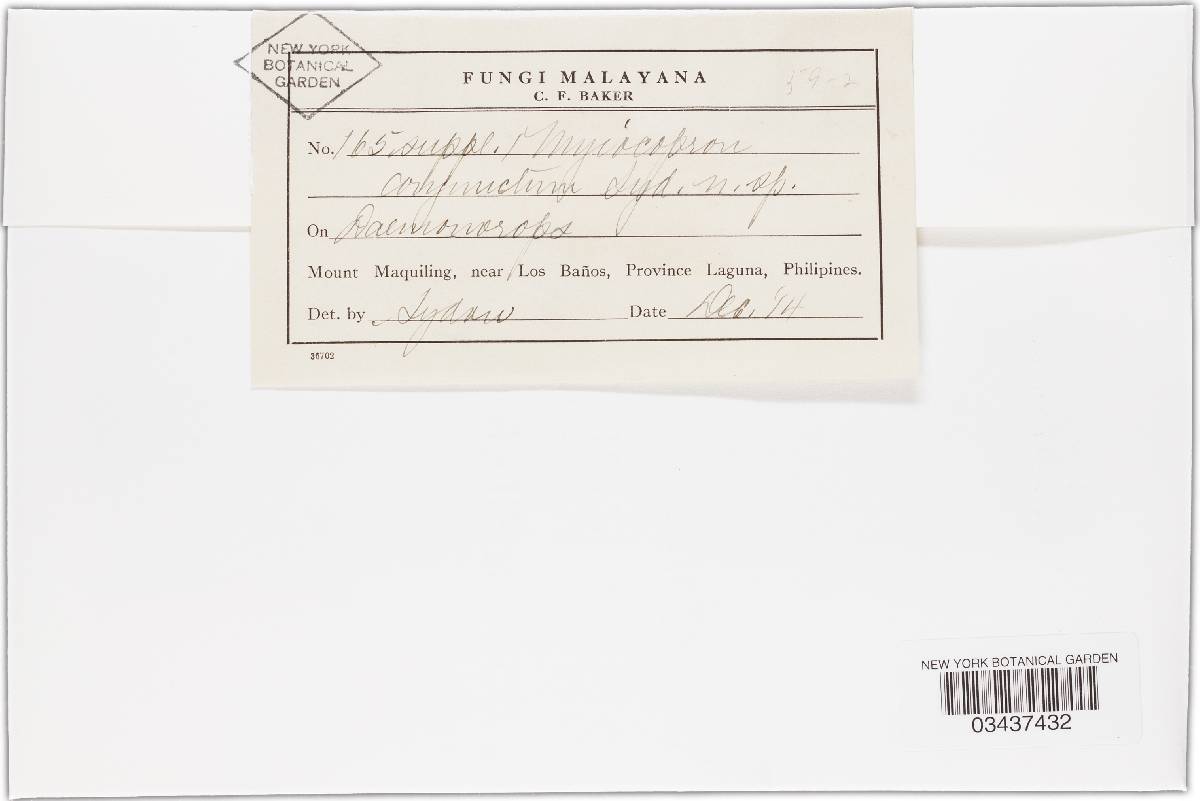 NEW YORK
BOTANICAL
GARDEN
FUNGI MALAYANA
C. F. BAKER
59-2
No. 165 suppl. 1 Myiocopron
conjunctum Syd. n. sp.
On Daemonorops
Mount Maquiling, near Los Baños, Province Laguna, Philipines.
Det. by Sydow Date Dec. '14
36702
NEW YORK BOTANICAL GARDEN
03437432